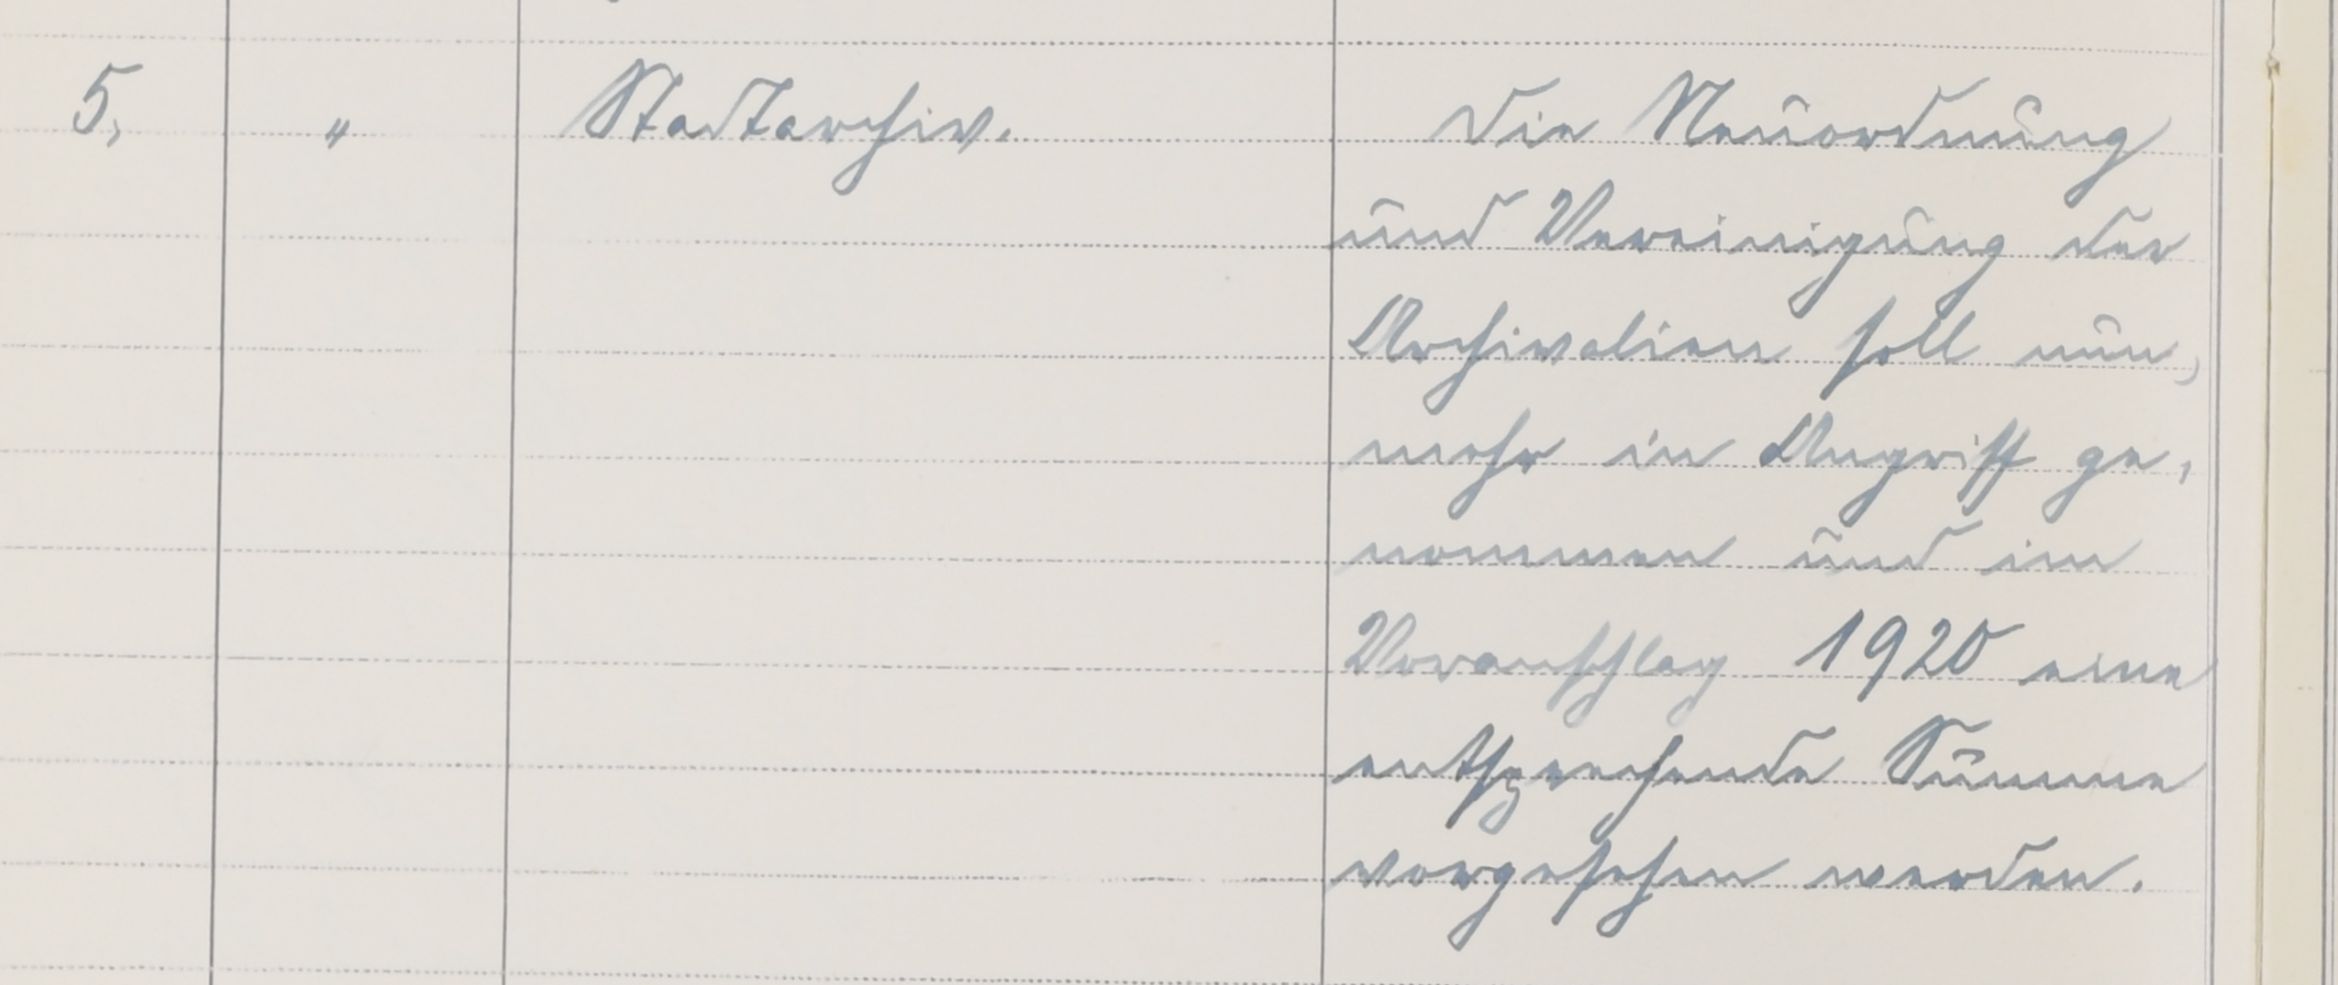 5, " Stadtarchiv. Die Neuordnung
und Vereinigung der
Archivalien soll nun,
mehr in Angriff ge,
nommen und im
Voranschlag 1920 eine
entsprechende Summe
vorgesehen werden.